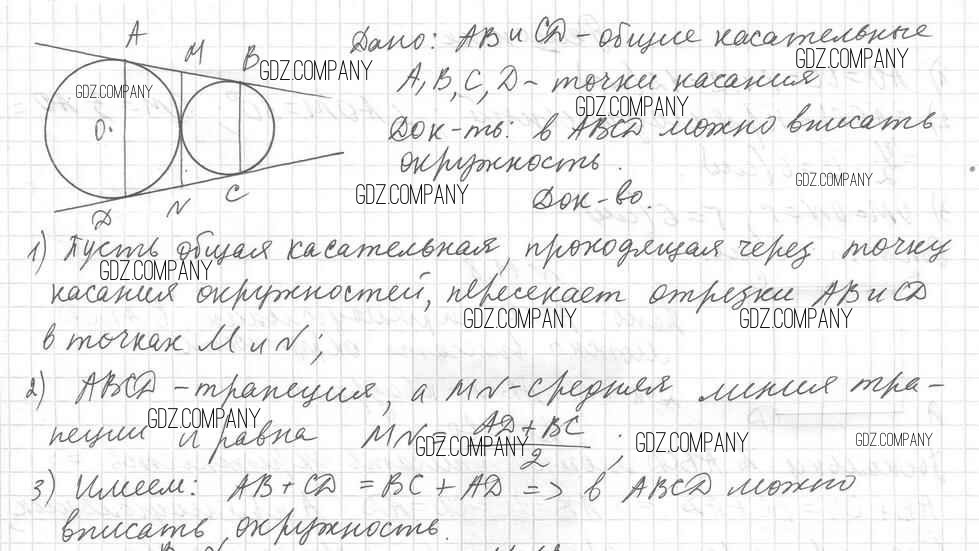 A
M
B
GDZ.COMPANY
Дано: AB и CD – общие касательные
GDZ.COMPANY
A, B, C, D – точки касания
GDZ.COMPANY
GDZ.COMPANY
O
Док-ть: в ABCD можно вписать
окружность.
GDZ.COMPANY
GDZ.COMPANY
D
N
C
Док-во.
1) Пусть общая касательная, проходящая через точку
GDZ.COMPANY
касания окружностей, пересекает отрезки AB и CD
GDZ.COMPANY
GDZ.COMPANY
в точках M и N;
2) ABCD – трапеция, а MN – средняя линия тра-
GDZ.COMPANY
пеции и равна MN = AD + BC / 2 ;
GDZ.COMPANY
GDZ.COMPANY
GDZ.COMPANY
3) Имеем: AB + CD = BC + AD => в ABCD можно
вписать окружность.